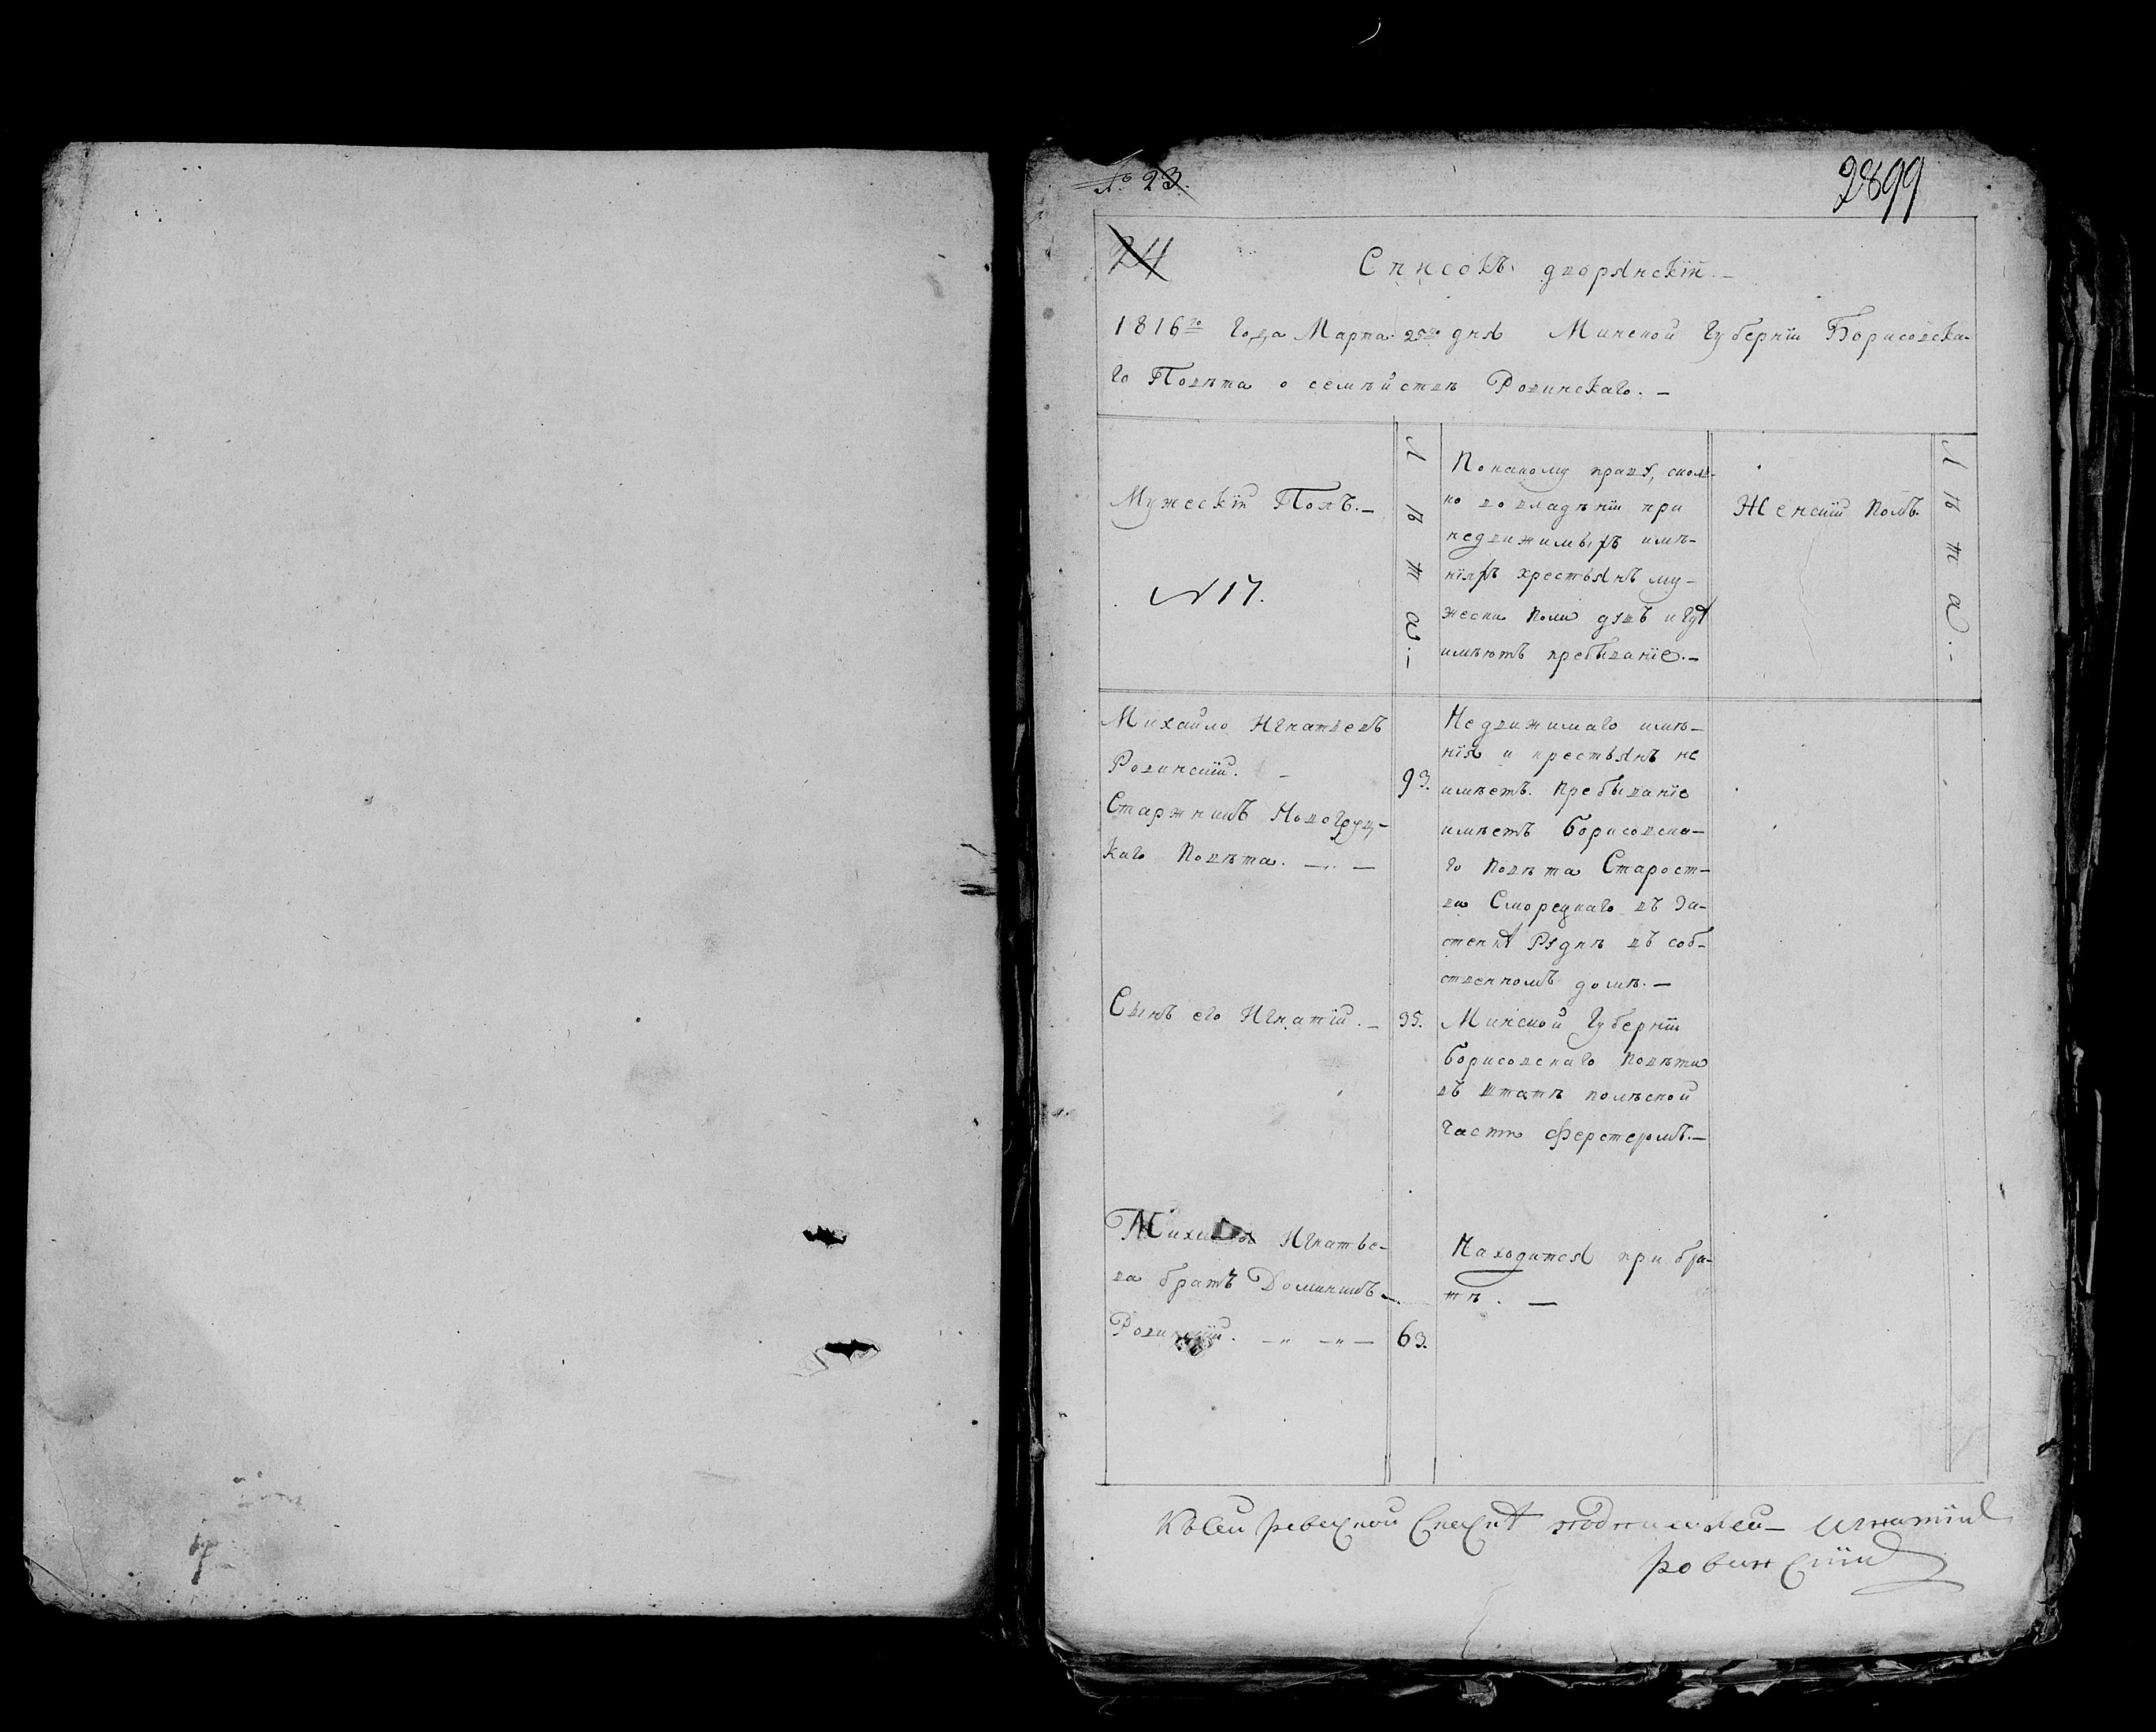 № 23.
2899
24
Списокъ дворянскій. —
1816го Года Марта 25го дня Минской Губерніи Борисовска-
го Повѣта о семѣйствѣ Ровинскаго. —
Мужескій Полъ. —
№ 17.
Л ѣ т а. —
По какому праву, сколь-
ко во владѣніи при
недвижимыхъ имѣ-
ніяхъ крестьянъ му-
жеска пола душъ и гдѣ
имѣютъ пребываніе. —
Женскій полъ.
Л ѣ т а. —
Михайло Игнатьевъ
Ровинскій. —
Старжникъ Новогруд-
каго Повѣта. — —
93.
Недвижимаго имѣ-
нія и крестьянъ не
имѣетъ. пребываніе
имѣетъ борисовска-
го повѣта Старост-
ва Смореднаго въ За-
стенкѣ Руднѣ въ соб-
ственномъ домѣ. —
Сынъ его Игнатій. —
35.
Минской Губерніи
борисовскаго повѣта
въ штатѣ полѣской
части ферстеромъ. —
Михайла Игнатье-
ва братъ Доминикъ —
Ровинскій. — „ — „ —
63.
Находится при бра-
тѣ. —
Къ сей ревескои скаскѣ Игнатій
Ровинскій